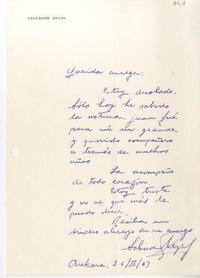 SALVADOR REYES
Querida amiga:
Estoy desolado.
Sólo hoy he sabido
la noticia, Juan fué
para mí un grande
y querido compañero
a través de muchos
años
La acompaño
de todo corazón.
Estoy triste
y no sé qué más le
puedo decir.
Reciba un
sincero abrazo de su amigo
Salvador Reyes
Ankara, 26/